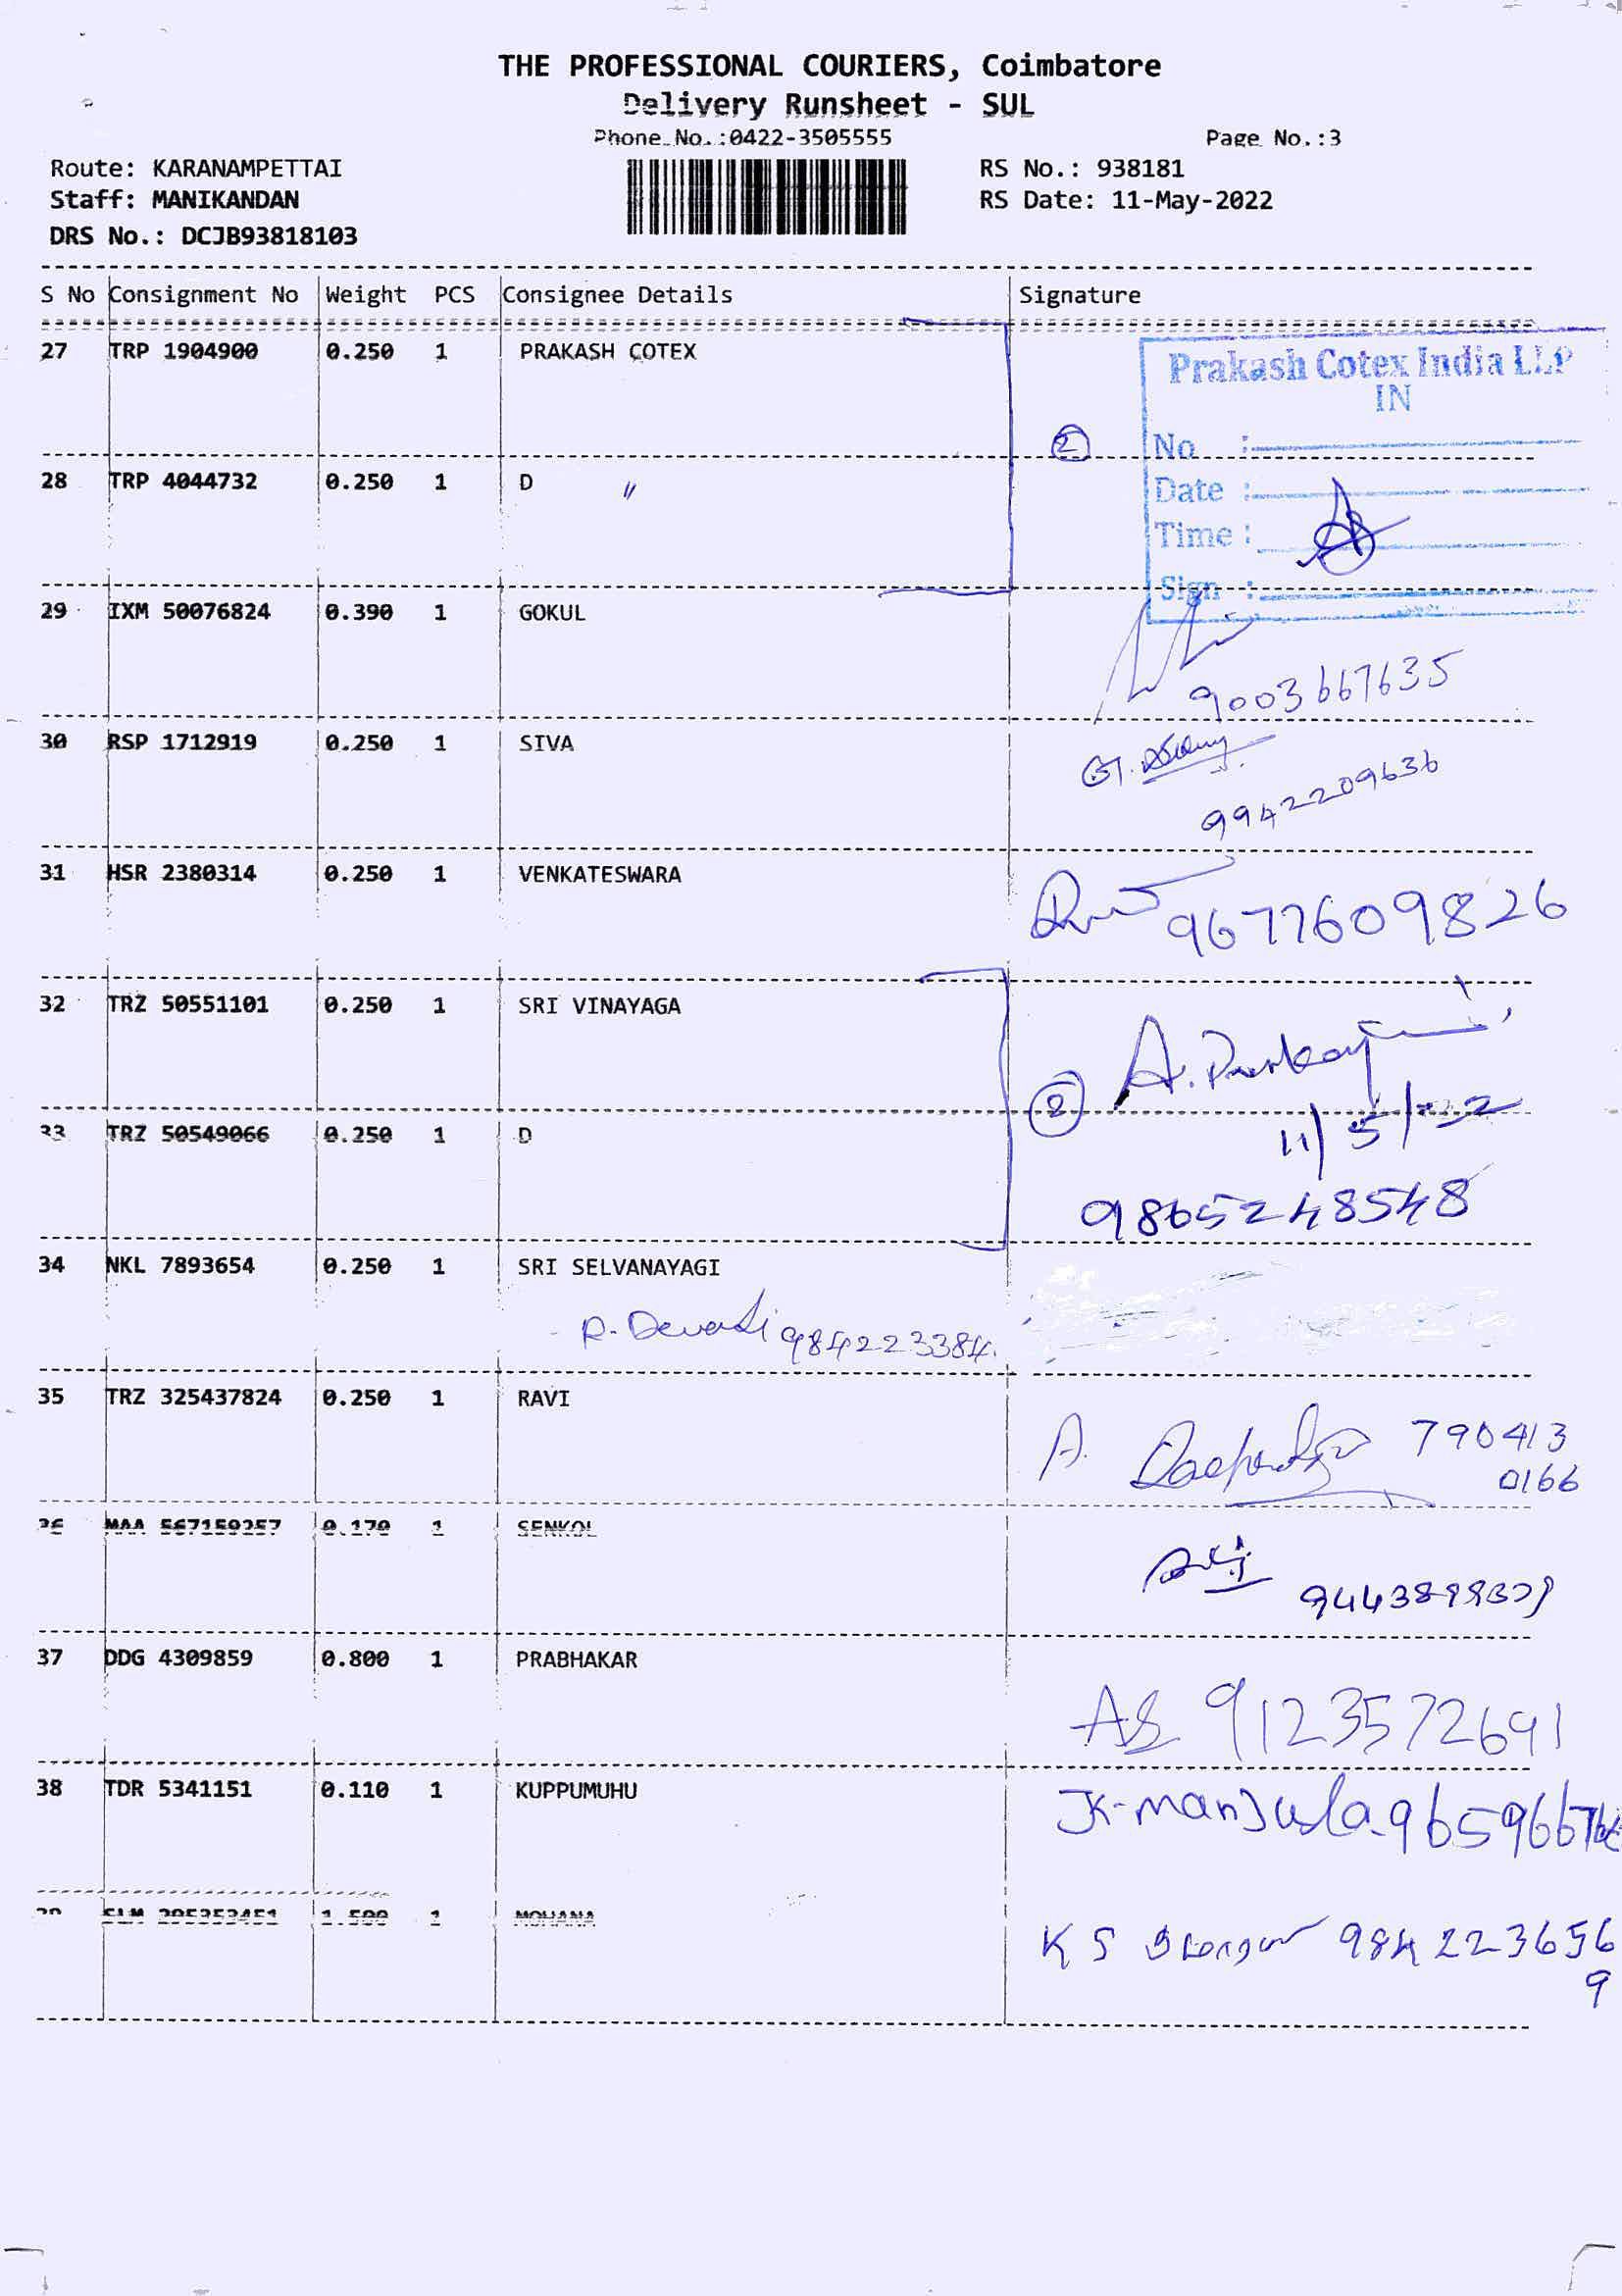 THE PROFESSIONAL COURIERS, Coimbatore
Delivery Runsheet - SUL
Phone No.:0422-3505555 Page No.:3
Route: KARANAMPETTAI RS No.: 938181
Staff: MANIKANDAN RS Date: 11-May-2022
DRS No.: DCJB93818103
S No Consignment No Weight PCS Consignee Details Signature
27 TRP 1904900 0.250 1 PRAKASH COTEX
Prakash Cotex India LLP
IN
2 No :
28 TRP 4044732 0.250 1 D "
Date :
Time :
Sign :
29 IXM 50076824 0.390 1 GOKUL
9003667635
30 RSP 1712919 0.250 1 SIVA
9942209636
31 HSR 2380314 0.250 1 VENKATESWARA
9677609826
32 TRZ 50551101 0.250 1 SRI VINAYAGA
2 A.
33 TRZ 50549066 0.250 1 D
11/5/22
9865248548
34 NKL 7893654 0.250 1 SRI SELVANAYAGI
R. 984223384.
35 TRZ 325437824 0.250 1 RAVI
A. 790413
0166
36 MAA 567159257 0.170 1 SENKOL
37 DDG 4309859 0.800 1 PRABHAKAR
AS 9123572691
38 TDR 5341151 0.110 1 KUPPUMUHU
JK-Manjula.
39 SLM 1.500 1 MOHANA
K S 984223656
9